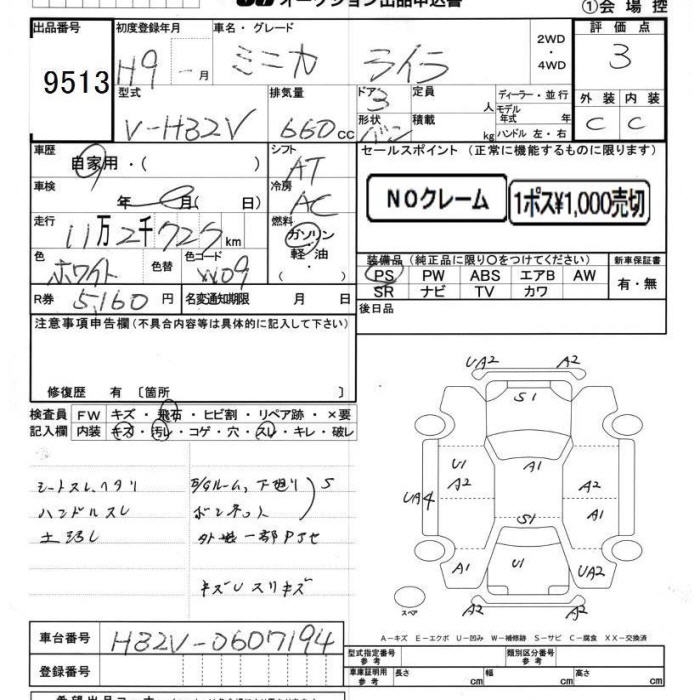 オークション出品申込書
①会場控
出品番号 9513
初度登録年月 H9 - 月
車名・グレード ミニカ ライラ
2WD・4WD
評価点 3
型式 V-H32V
排気量 660cc
ドア 3
形状 バン
定員 人
積載 kg
ディーラー・並行
モデル年式 年
ハンドル 左・右
外装 C
内装 C
車歴 自家用・( )
シフト AT
車検 年 月( 日)
冷房 AC
走行 11万2千725km
燃料 ガソリン・軽油・( )
色 ホワイト 色替 色コード W09
R券 5,160円
名変通知期限 月 日
セールスポイント (正常に機能するものに限ります)
NOクレーム
1ポス¥1,000売切
装備品(純正品に限り○をつけてください) 新車保証書
PS PW ABS エアB AW
SR ナビ TV カワ
有・無
後日品
注意事項申告欄(不具合内容等は具体的に記入して下さい)
修復歴 有 〔箇所 〕
検査員記入欄
FW キズ・飛石・ヒビ割・リペア跡・×要
内装 キズ・汚レ・コゲ・穴・スレ・キレ・破レ
シートスレ、ヘタリ
ハンドルスレ
E/Gルーム、下廻り S
ボンネット
外装一部P
キズUスリキズ
UA2 A2
S1
U1 A2 A1 A2
UA4 A1
S1
A1 U1 UA2
スペア
A-キズ E-エクボ U-凹み W-補修跡 S-サビ C-腐食 XX-交換済
車台番号 H32V-0607194
登録番号
型式指定番号 参考
類別区分番号 参考
車庫証明用 参考
長さ cm
幅 cm
高さ cm